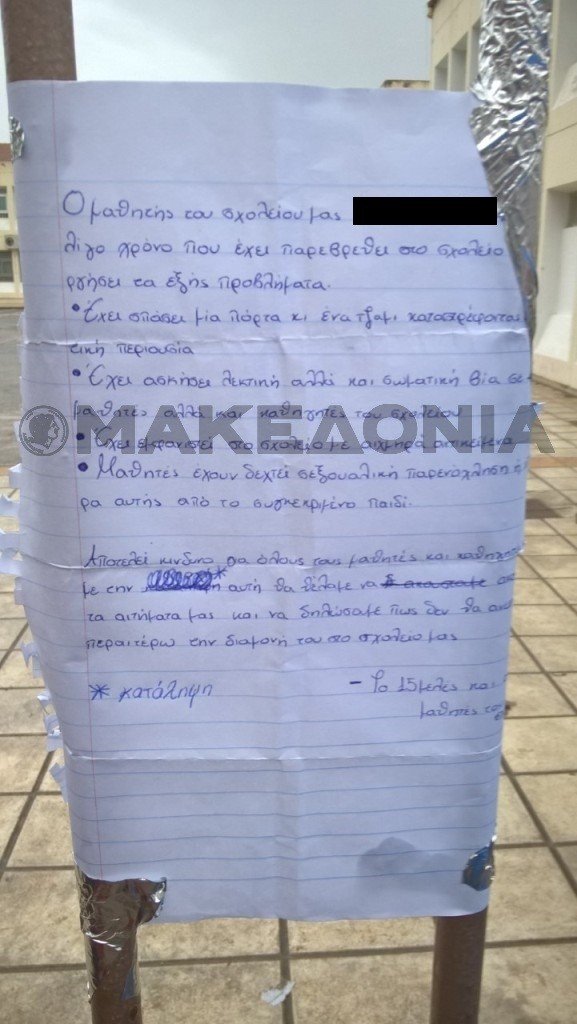 Ο μαθητής του σχολείου μας
λίγο χρόνο που έχει παρεβρεθεί στο σχολείο
ργήσει τα εξής προβλήματα.
• Έχει σπάσει μία πόρτα κι ένα τζάμι καταστρέφοντας
τική περιουσία
• Έχει ασκήσει λεκτική αλλά και σωματική βία σε
μαθητές αλλά και καθηγητές του σχολείου
ΜΑΚΕΔΟΝΙΑ
• Έχει εμφανιστεί στο σχολείο με αιχμηρά αντικείμενα
• Μαθητές έχουν δεχτεί σεξουαλική παρενόχληση ή
ρα αυτής από το συγκεκριμένο παιδί.
Αποτελεί κίνδυνο για όλους τους μαθητές και καθηγητ
με την * αυτή θα θέλαμε να
τα αιτήματα μας και να δηλώσαμε πως δεν θα ανε
περαιτέρω την διαμονή του στο σχολείο μας
* κατάληψη
- Το 15μελές και
μαθητές το